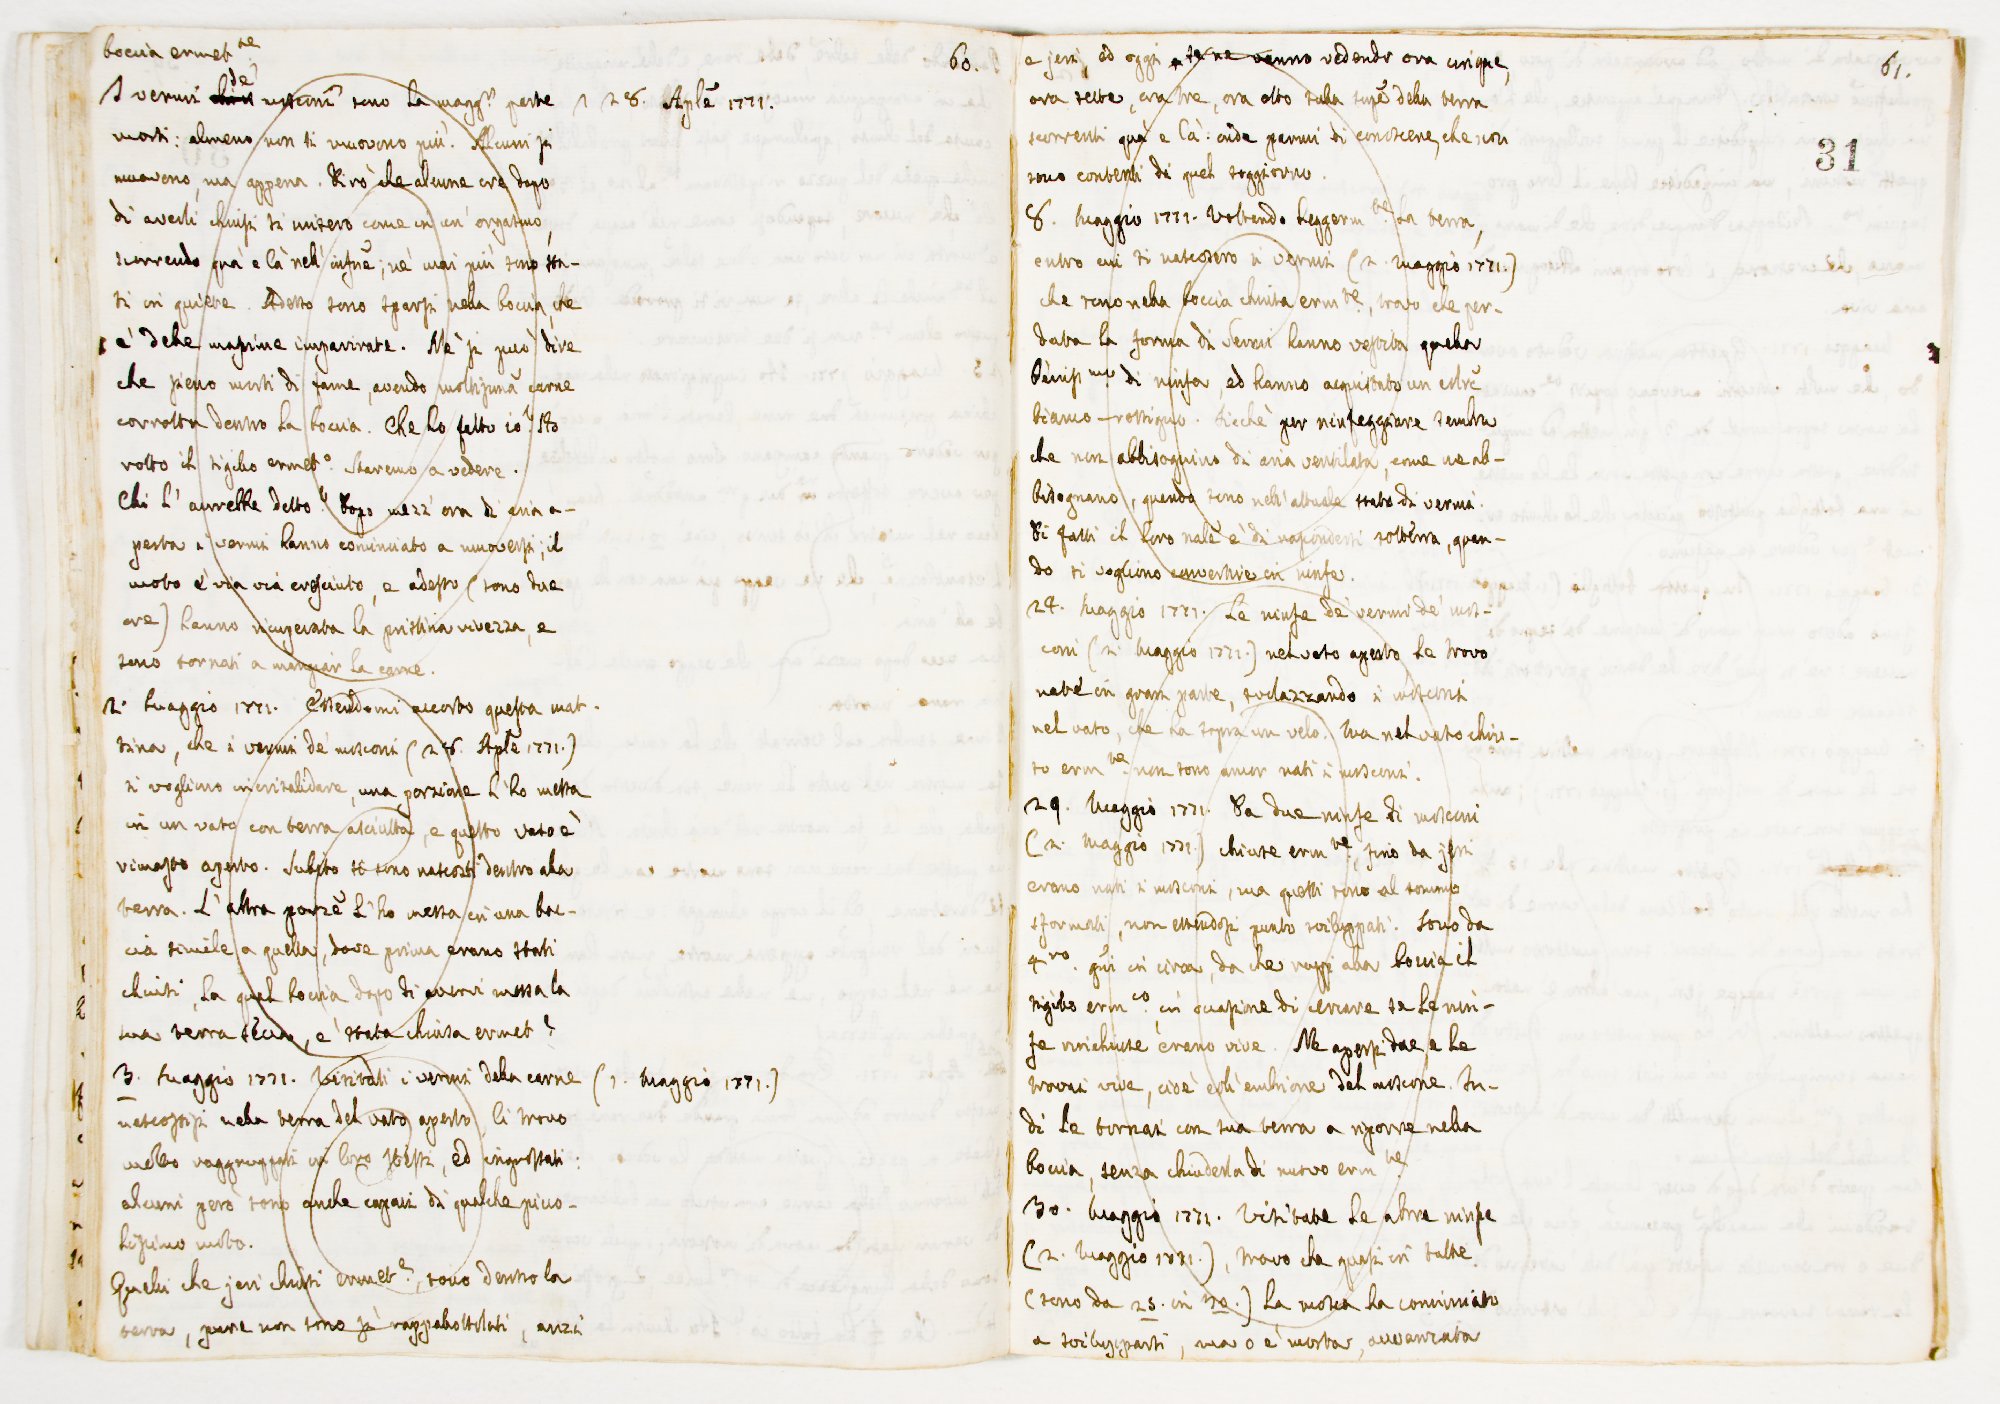 boccia ermet.te
I vermi de' mosconi sono la magg.r parte 1 28. Aplẽ 1771.
morti: almeno non si muovono più. Alcuni si
muovono, ma appena. Dirò che alcune ore dopo
di averli chiusi si misero come in un' orgasmo,
scorrendo quà e là nell'
ti in quiete. Adesso sono sparsi nella boccia, che
e' delle massime impavirate. Nè si può dire
che sieno morti di fame, avendo moltissima carne
corrotta dentro la boccia. Che ho fatto io? Ho
rotto il sigillo ermet.o Staremo a vedere.
Chi l' avrebbe detto? Dopo mezz' ora di aria a-
perta i vermi hanno cominciato a muoversi; il
moto è via via cresciuto, e adesso (sono due
ore) hanno ricuperata la pristina vivezza, e
sono tornati a mangiar la carne.
2. Maggio 1771. Essendomi accorto questa mat-
tina, che i vermi de' mosconi (28. Aplẽ 1771.)
si vogliono incrisalidare, una porzione l' ho messa
in un vaso con terra asciutta, e questo vaso è
rimasto aperto. Subito si sono nascosti dentro alla
terra. L' altra porzẽ l' ho messa in una boc-
cia simile a quella, dove prima erano stati
chiusi, la qual boccia dopo di avervi messa la
sua terra secca, e' stata chiusa ermet.e
3. Maggio 1771. Visitati i vermi della carne (1. Maggio 1771.)
nascostisi nella terra del vaso aperto, li trovo
molto raggruppati in loro stessi, ed ingrossati:
alcuni però sono anche capaci di qualche picco-
lissimo moto.
Quelli che jeri chiusi ermet.e, sono dentro la
terra, pure non sono sì rappallottolati, anzi
60.
e jeri, ed oggi se ne vanno vedendo ora cinque,
ora sette, ora tre, ora otto sulla supẽ della terra
scorrenti quà e là: onde parmi di conoscere, che non
sono contenti di quel soggiorno.
61.
31
8. Maggio 1771. Voltando leggerm.te la terra,
entro cui si nascosero i vermi (2. Maggio 1771.)
che sono nella boccia chiusa erm.te, trovo che per-
duta la forma di vermi hanno vestita quella
di ninfa, ed hanno acquistato un
bianco-rossigno. Sicchè per ninfeggiare sembra
che non abbisognino di aria ventilata, come ne ab-
bisognano, quando sono nell' attuale stato di vermi.
Di fatti il loro nalẽ è di nascondersi sotterra, quan-
do si vogliono convertire in ninfe.
24. Maggio 1771. Le ninfe de' vermi de' mos-
coni (2. Maggio 1771.) nel vaso aperto le trovo
nate in gran parte, svolazzando i mosconi
nel vaso, che ha sopra un velo. Ma nel vaso chiu-
so erm.te non sono ancor nati i mosconi.
29. Maggio 1771. Da due ninfe di mosconi
(2. Maggio 1771.) chiuse erm.te, fino da jeri
erano nati i mosconi, ma questi sono al sommo
sformati, non essendosi punto sviluppati. Sono da
4.ro gni in circa, da che ruppi alla boccia il
sigillo erm.co in occasione di cercare se le nin-
fe rinchiuse erano vive. Ne apersi due, e le
trovai vive, cioè coll' embrione del moscone. In-
di le tornai con sua terra a riporre nella
boccia, senza chiuderla di nuovo erm.te
30. Maggio 1771. Visitate le altre ninfe
(2. Maggio 1771.), trovo che quasi in tutte
(sono da 25. in 30.) la mosca ha cominciato
a svilupparsi, ma o è morta, avvanzata